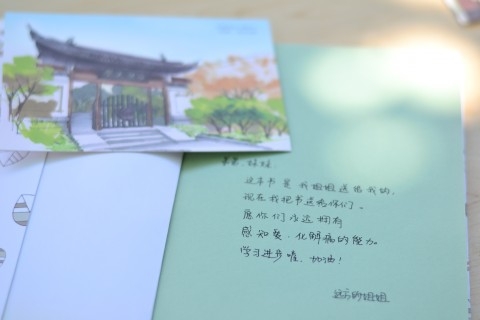 弟弟、妹妹：
这本书是我姐姐送给我的，
现在我把书送给你们。
愿你们永远拥有
感知爱、化解痛的能力。
学习进步喔，加油！
远方的姐姐